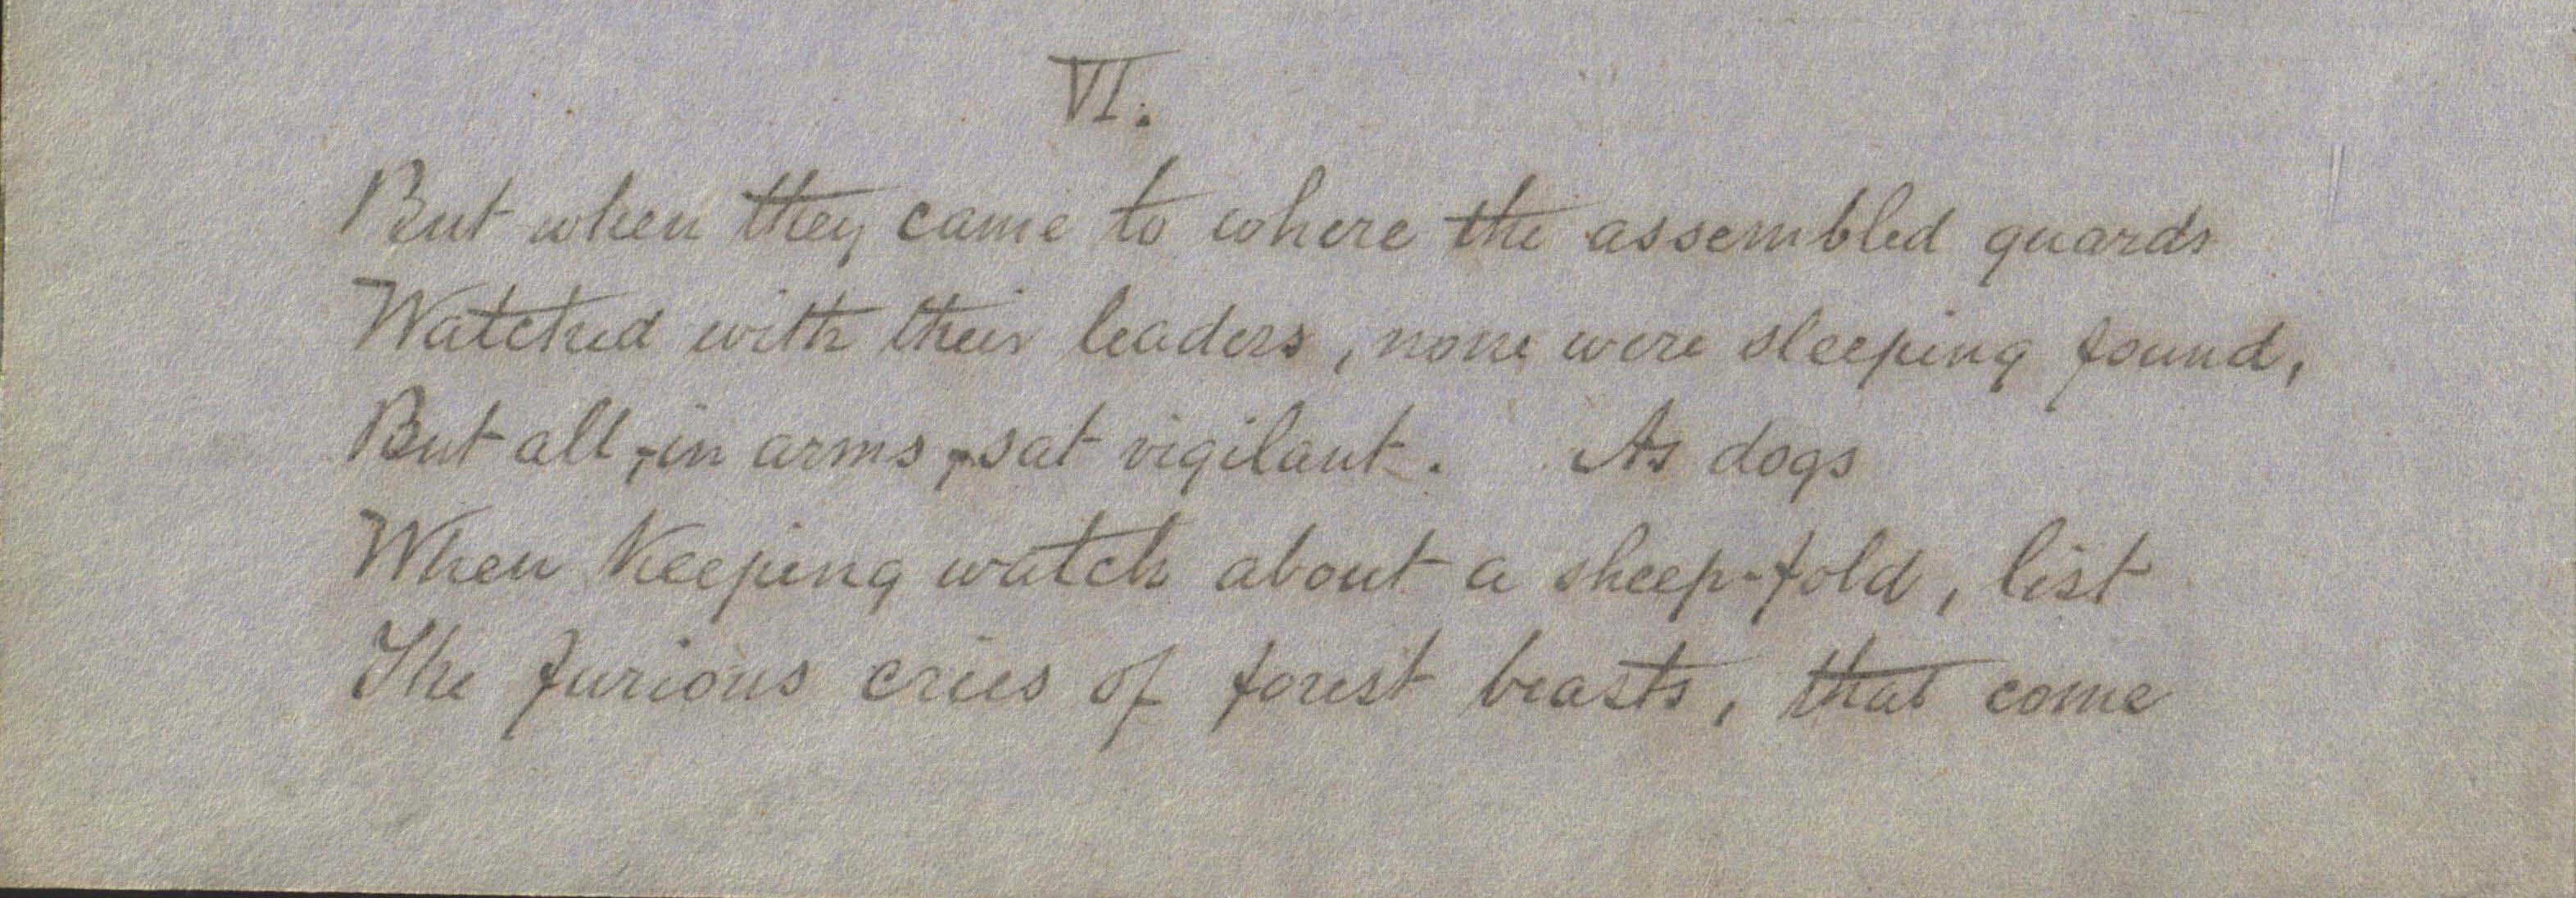 VI.
But when they came to where the assembled guards
Watched with their leaders, none were sleeping found,
But all, in arms, sat vigilant. As dogs
When keeping watch about a sheep-fold, list
The furious cries of forest beasts, that come